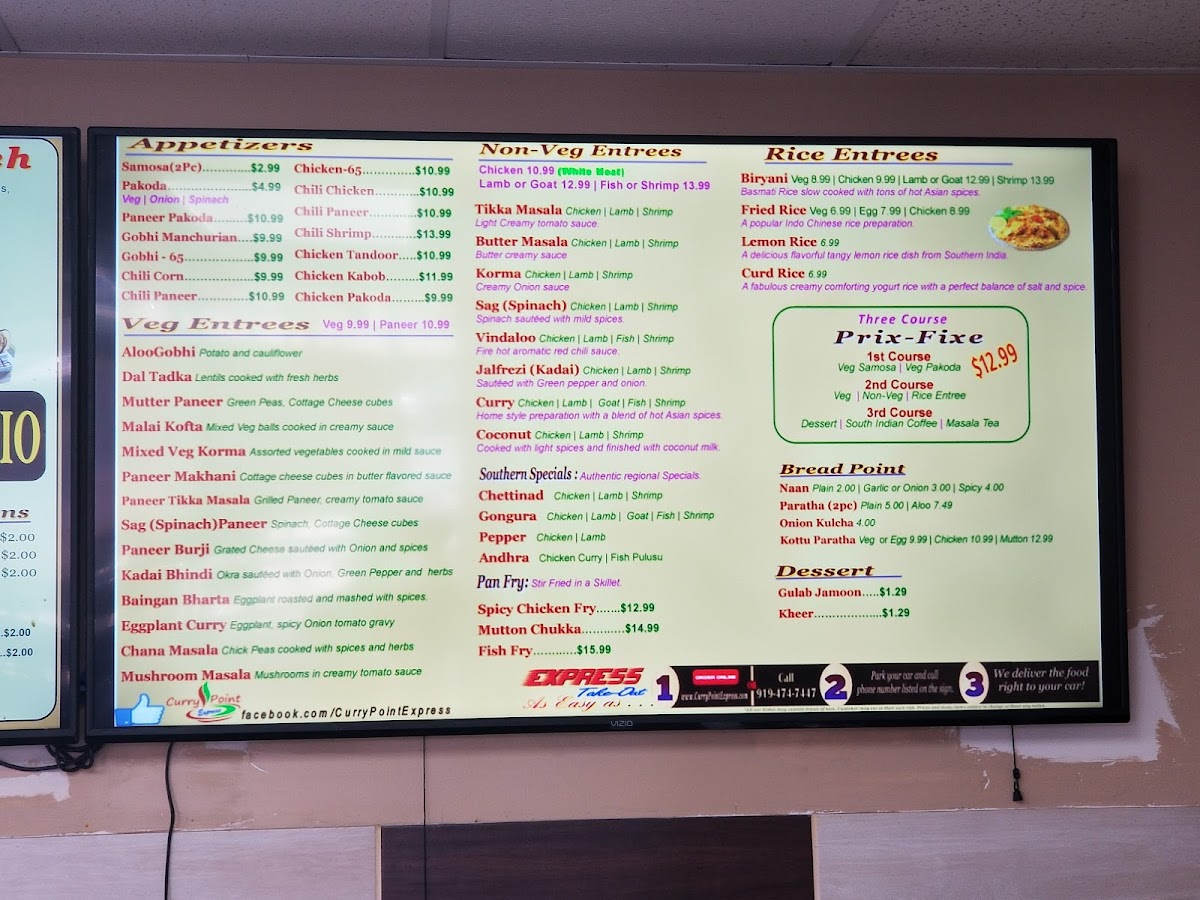 eh
s,
IO
ns
$2.00
$2.00
$2.00
.$2.00
..$2.00
Appetizers
Samosa(2Pc)............$2.99
Pakoda.....................$4.99
Veg | Onion | Spinach
Paneer Pakoda.........$10.99
Gobhi Manchurian....$9.99
Gobhi - 65..................$9.99
Chili Corn..................$9.99
Chili Paneer.............$10.99
Chicken-65..............$10.99
Chili Chicken............$10.99
Chili Paneer.............$10.99
Chili Shrimp.............$13.99
Chicken Tandoor.....$10.99
Chicken Kabob........$11.99
Chicken Pakoda.........$9.99
Veg Entrees Veg 9.99 | Paneer 10.99
AlooGobhi Potato and cauliflower
Dal Tadka Lentils cooked with fresh herbs
Mutter Paneer Green Peas, Cottage Cheese cubes
Malai Kofta Mixed Veg balls cooked in creamy sauce
Mixed Veg Korma Assorted vegetables cooked in mild sauce
Paneer Makhani Cottage cheese cubes in butter flavored sauce
Paneer Tikka Masala Grilled Paneer, creamy tomato sauce
Sag (Spinach)Paneer Spinach, Cottage Cheese cubes
Paneer Burji Grated Cheese sautéed with Onion and spices
Kadai Bhindi Okra sautéed with Onion, Green Pepper and herbs
Baingan Bharta Eggplant roasted and mashed with spices.
Eggplant Curry Eggplant, spicy Onion tomato gravy
Chana Masala Chick Peas cooked with spices and herbs
Mushroom Masala Mushrooms in creamy tomato sauce
Curry Point
Express
facebook.com/CurryPointExpress
Non-Veg Entrees
Chicken 10.99 (White Meat)
Lamb or Goat 12.99 | Fish or Shrimp 13.99
Tikka Masala Chicken | Lamb | Shrimp
Light Creamy tomato sauce.
Butter Masala Chicken | Lamb | Shrimp
Butter creamy sauce
Korma Chicken | Lamb | Shrimp
Creamy Onion sauce
Sag (Spinach) Chicken | Lamb | Shrimp
Spinach sautéed with mild spices.
Vindaloo Chicken | Lamb | Fish | Shrimp
Fire hot aromatic red chili sauce.
Jalfrezi (Kadai) Chicken | Lamb | Shrimp
Sautéed with Green pepper and onion.
Curry Chicken | Lamb | Goat | Fish | Shrimp
Home style preparation with a blend of hot Asian spices.
Coconut Chicken | Lamb | Shrimp
Cooked with light spices and finished with coconut milk.
Southern Specials : Authentic regional Specials.
Chettinad Chicken | Lamb | Shrimp
Gongura Chicken | Lamb | Goat | Fish | Shrimp
Pepper Chicken | Lamb
Andhra Chicken Curry | Fish Pulusu
Pan Fry: Stir Fried in a Skillet.
Spicy Chicken Fry.......$12.99
Mutton Chukka............$14.99
Fish Fry............$15.99
Rice Entrees
Biryani Veg 8.99 | Chicken 9.99 | Lamb or Goat 12.99 | Shrimp 13.99
Basmati Rice slow cooked with tons of hot Asian spices.
Fried Rice Veg 6.99 | Egg 7.99 | Chicken 8.99
A popular Indo Chinese rice preparation.
Lemon Rice 6.99
A delicious flavorful tangy lemon rice dish from Southern India.
Curd Rice 6.99
A fabulous creamy comforting yogurt rice with a perfect balance of salt and spice.
Three Course
Prix-Fixe
$12.99
1st Course
Veg Samosa | Veg Pakoda
2nd Course
Veg | Non-Veg | Rice Entree
3rd Course
Dessert | South Indian Coffee | Masala Tea
Bread Point
Naan Plain 2.00 | Garlic or Onion 3.00 | Spicy 4.00
Paratha (2pc) Plain 5.00 | Aloo 7.49
Onion Kulcha 4.00
Kottu Paratha Veg or Egg 9.99 | Chicken 10.99 | Mutton 12.99
Dessert
Gulab Jamoon.....$1.29
Kheer...................$1.29
EXPRESS
Take-Out
As Easy as . . .
1
ORDER ONLINE
www.CurryPointExpress.com
Call
919-474-7447
2
Park your car and call
phone number listed on the sign.
3
We deliver the food
right to your car!
VIZIO